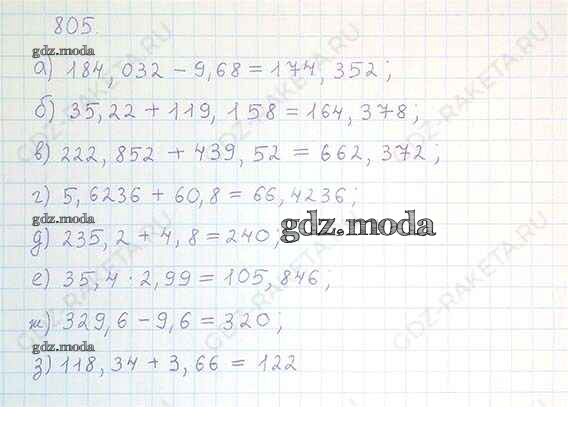 805.
gdz.moda
а) 184,032 - 9,68 = 174,352;
б) 35,22 + 119,158 = 164,378;
в) 222,852 + 439,52 = 662,372;
г) 5,6236 + 60,8 = 66,4236;
gdz.moda
gdz.moda
д) 235,2 + 4,8 = 240;
е) 35,4 · 2,99 = 105,846;
ж) 329,6 - 9,6 = 320;
gdz.moda
з) 118,34 + 3,66 = 122
GDZ-RAKETA.RU
GDZ-RAKETA.RU
GDZ-RAKETA.RU
GDZ-RAKETA.RU